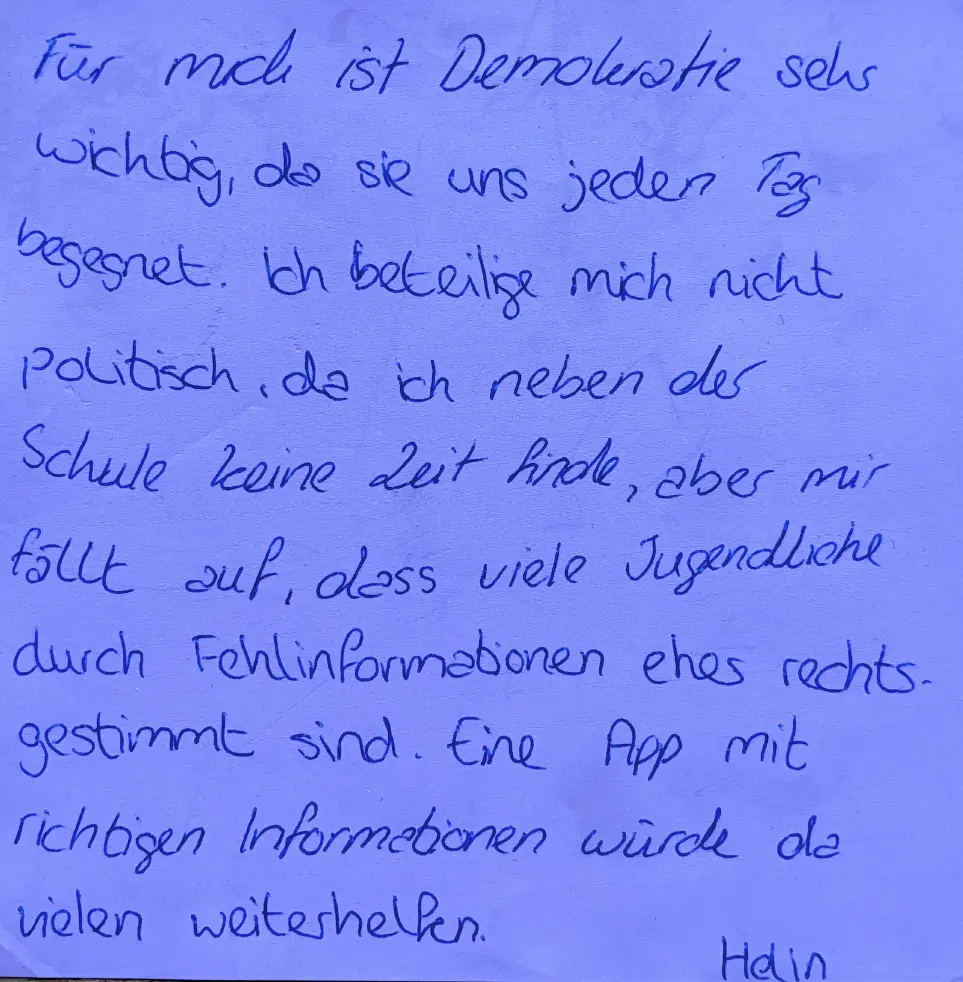 Für mich ist Demokratie sehr
wichtig, da sie uns jeden Tag
begegnet. Ich beteilige mich nicht
politisch, da ich neben der
Schule keine Zeit finde, aber mir
fällt auf, dass viele Jugendliche
durch Fehlinformationen eher rechts-
gestimmt sind. Eine App mit
richtigen Informationen würde da
vielen weiterhelfen.
Helin